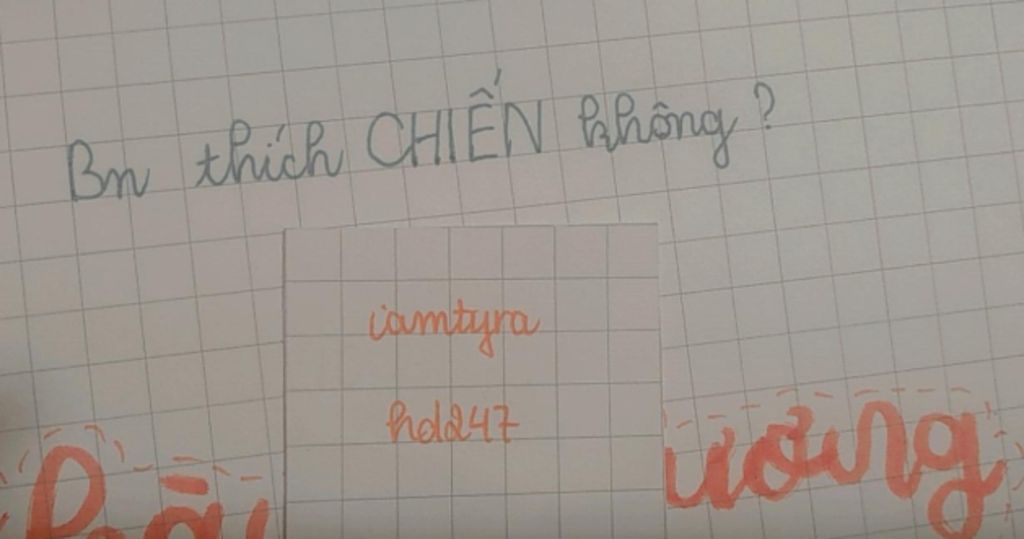 Bn thích CHIẾN không?
iamtyra
hd247